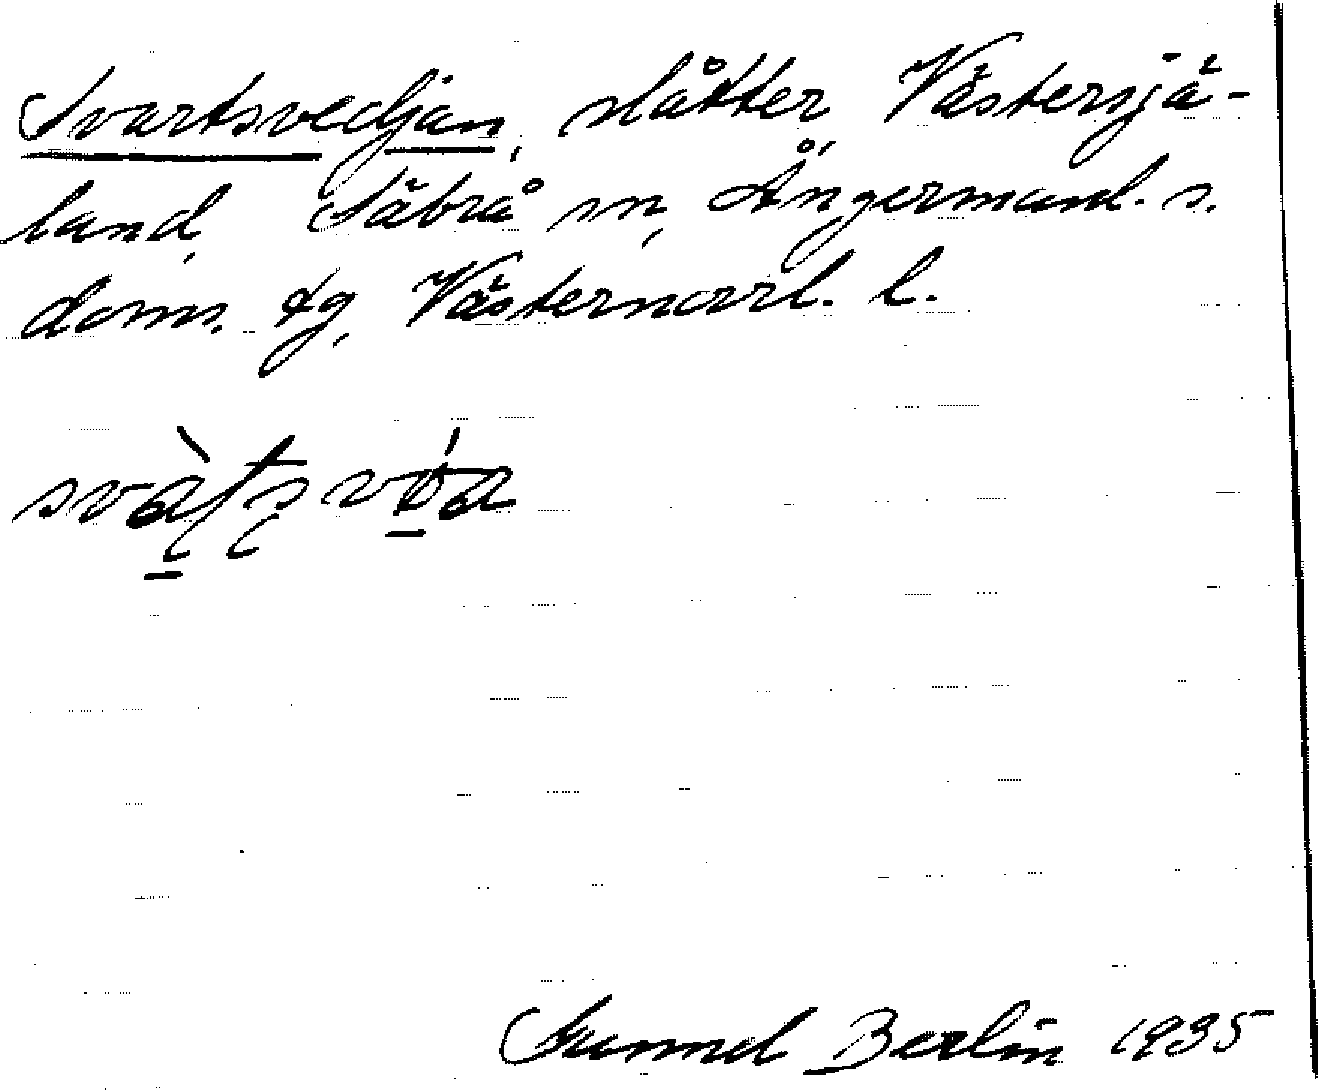 Svartsvedjan, slåtter, Västersjä-
land, Säbrå sn, Ångermanl. s.
doms. tg, Västernorrl. l.
Gunnel Berlin 1935